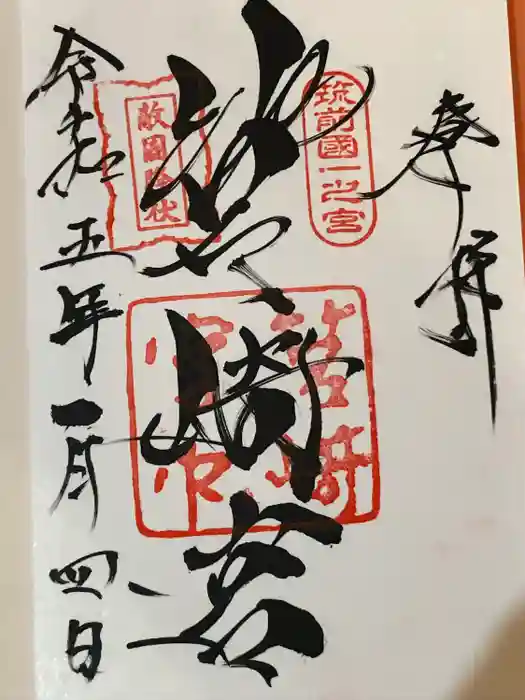 奉拝
筑前國一之宮
筥崎宮
筥崎
宮印
敵國降伏
令和五年一月四日